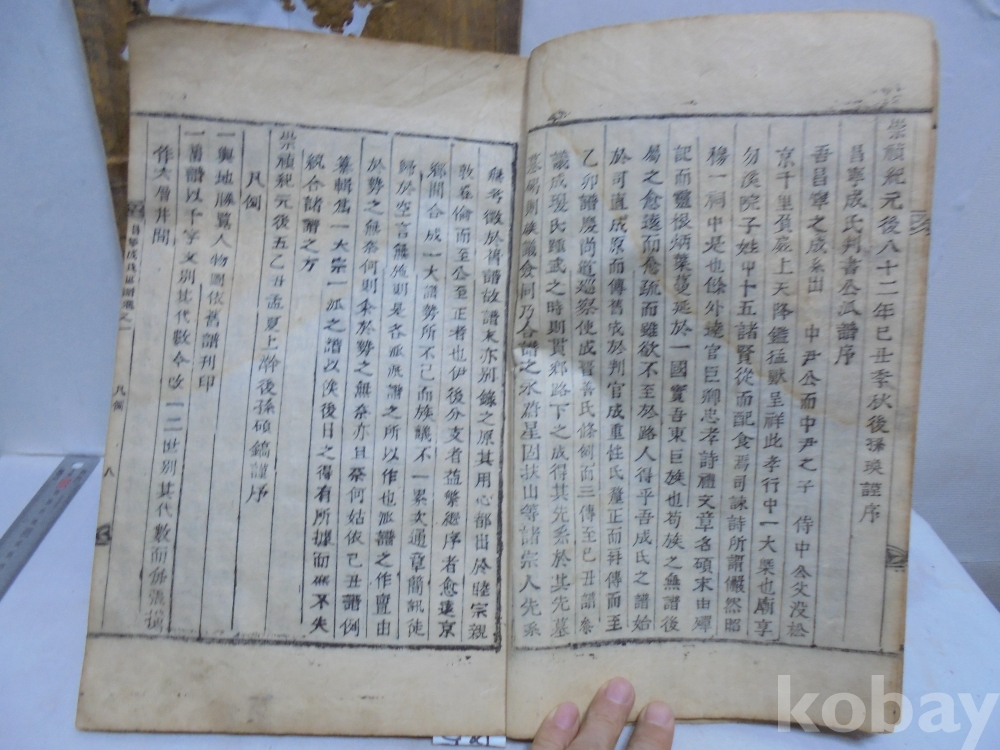 崇禎紀元後八十二年己丑季秋後孫瑛謹序
昌寧成氏判書公派譜序
吾昌寧之成系出 中尹公而中尹之子 侍中公父沒於
京千里負厳上天降鑑猛獸呈祥此孝行中一大槩也廟享
勿溪院子姓中十五諸賢從而配食焉司詠詩所謂儼然昭
穆一祠中是也餘外達官巨卿忠孝詩禮文章名碩末由殫
記而靈根炳葉蔓延於一國實吾東巨族也苟族之無譜後
屬之愈遠而愈疏而雖欲不至於路人得乎吾成氏之譜始
於可道成原而傳舊成於判官成重性氏釐正而再傳而至
乙卯譜慶尚道廵察使成晋善氏條例而三傳至己丑譜叅
議成瑗氏雖武之時則貫鄉路下之成得其先系於其先墓
墓碣則族議僉同乃合譜之永尉星固扶山等諸宗人先系
無考徵於舊譜故譜末亦別錄之原其用心都出於睦宗親
敦叙倫而至公至正者也伊後分支者益繁繼序者愈遠京
鄉間合成一大譜勢所不已而族議不一累次通章簡訊徒
歸於空言無施則是各派派譜之所以作也派譜之作亶由
於勢之無奈何則余於勢之無奈亦且奈何姑依己丑譜例
纂輯焉一大宗一派之譜以俟後日之得有所據而庶不失
統合譜譜之方
崇禎紀元後五乙丑孟夏上澣後孫碩鎬謹序
凡例
一輿地勝覧人物圖依舊譜刊印
一舊譜以千字文別其代數今改一二世別其代數而每張橫
作大層井間
凡例
八
kobay